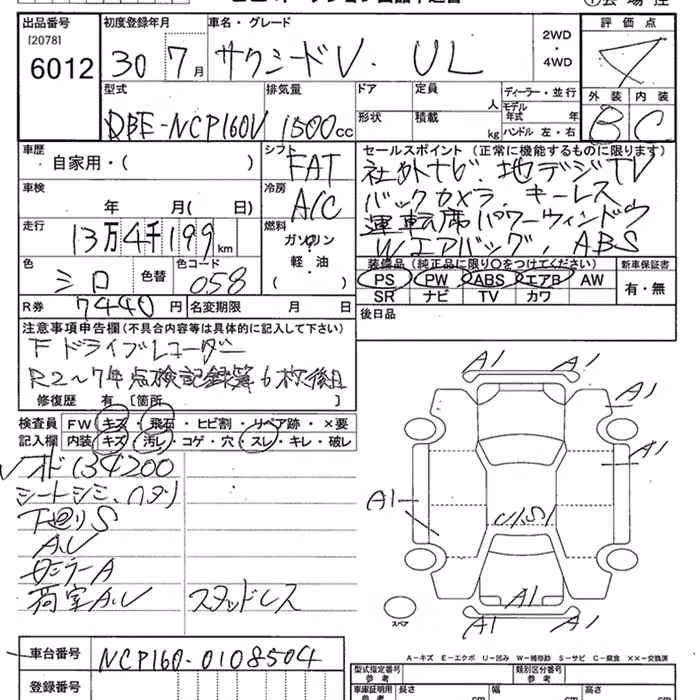 出品番号 初度登録年月 車名・グレード 評価点
[2078]
6012 30 7月 サクシードV. UL 2WD・4WD 4
型式 排気量 ドア 定員 人 ディーラー・並行 外装 内装
DBE-NCP160V 1500cc 形状 積載 kg モデル年式 年 ハンドル 左・右 B C
車歴 自家用・( ) シフト FAT セールスポイント (正常に機能するものに限ります)
社外ナビ. 地デジTV
車検 年 月( 日) 冷房 A/C バックカメラ. キーレス
運転席パワーウィンドウ
走行 13万4千199km 燃料 ガソリン 軽・油 Wエアバッグ. ABS
色 シロ 色替 色コード 058 装備品 (純正品に限り○をつけてください) 新車保証書
PS PW ABS エアB AW 有・無
R券 7440円 名変期限 月 日 SR ナビ TV カワ
注意事項申告欄(不具合内容等は具体的に記入して下さい) 後日品
F ドライブレコーダー
R2〜7年点検記録簿6枚後日
修復歴 有 〔箇所 〕
検査員 FW キズ・飛石・ヒビ割・リペア跡・×要
記入欄 内装 キズ・汚レ・コゲ・穴・スレ・キレ・破レ
オド134200
シートシミ、ヘタリ
下廻りS
A.U
ミラーA
荷室A.U スタッドレス
A1
A1 A1
A1 A1
A1
U1S1
A1
A1 A1
スペア
A-キズ E-エクボ U-凹み W-補修跡 S-サビ C-腐食 XX-交換済
車台番号 NCP160-0108504 型式指定番号 参考 類別区分番号 参考
登録番号 車庫証明用 参考 長さ cm 幅 cm 高さ cm